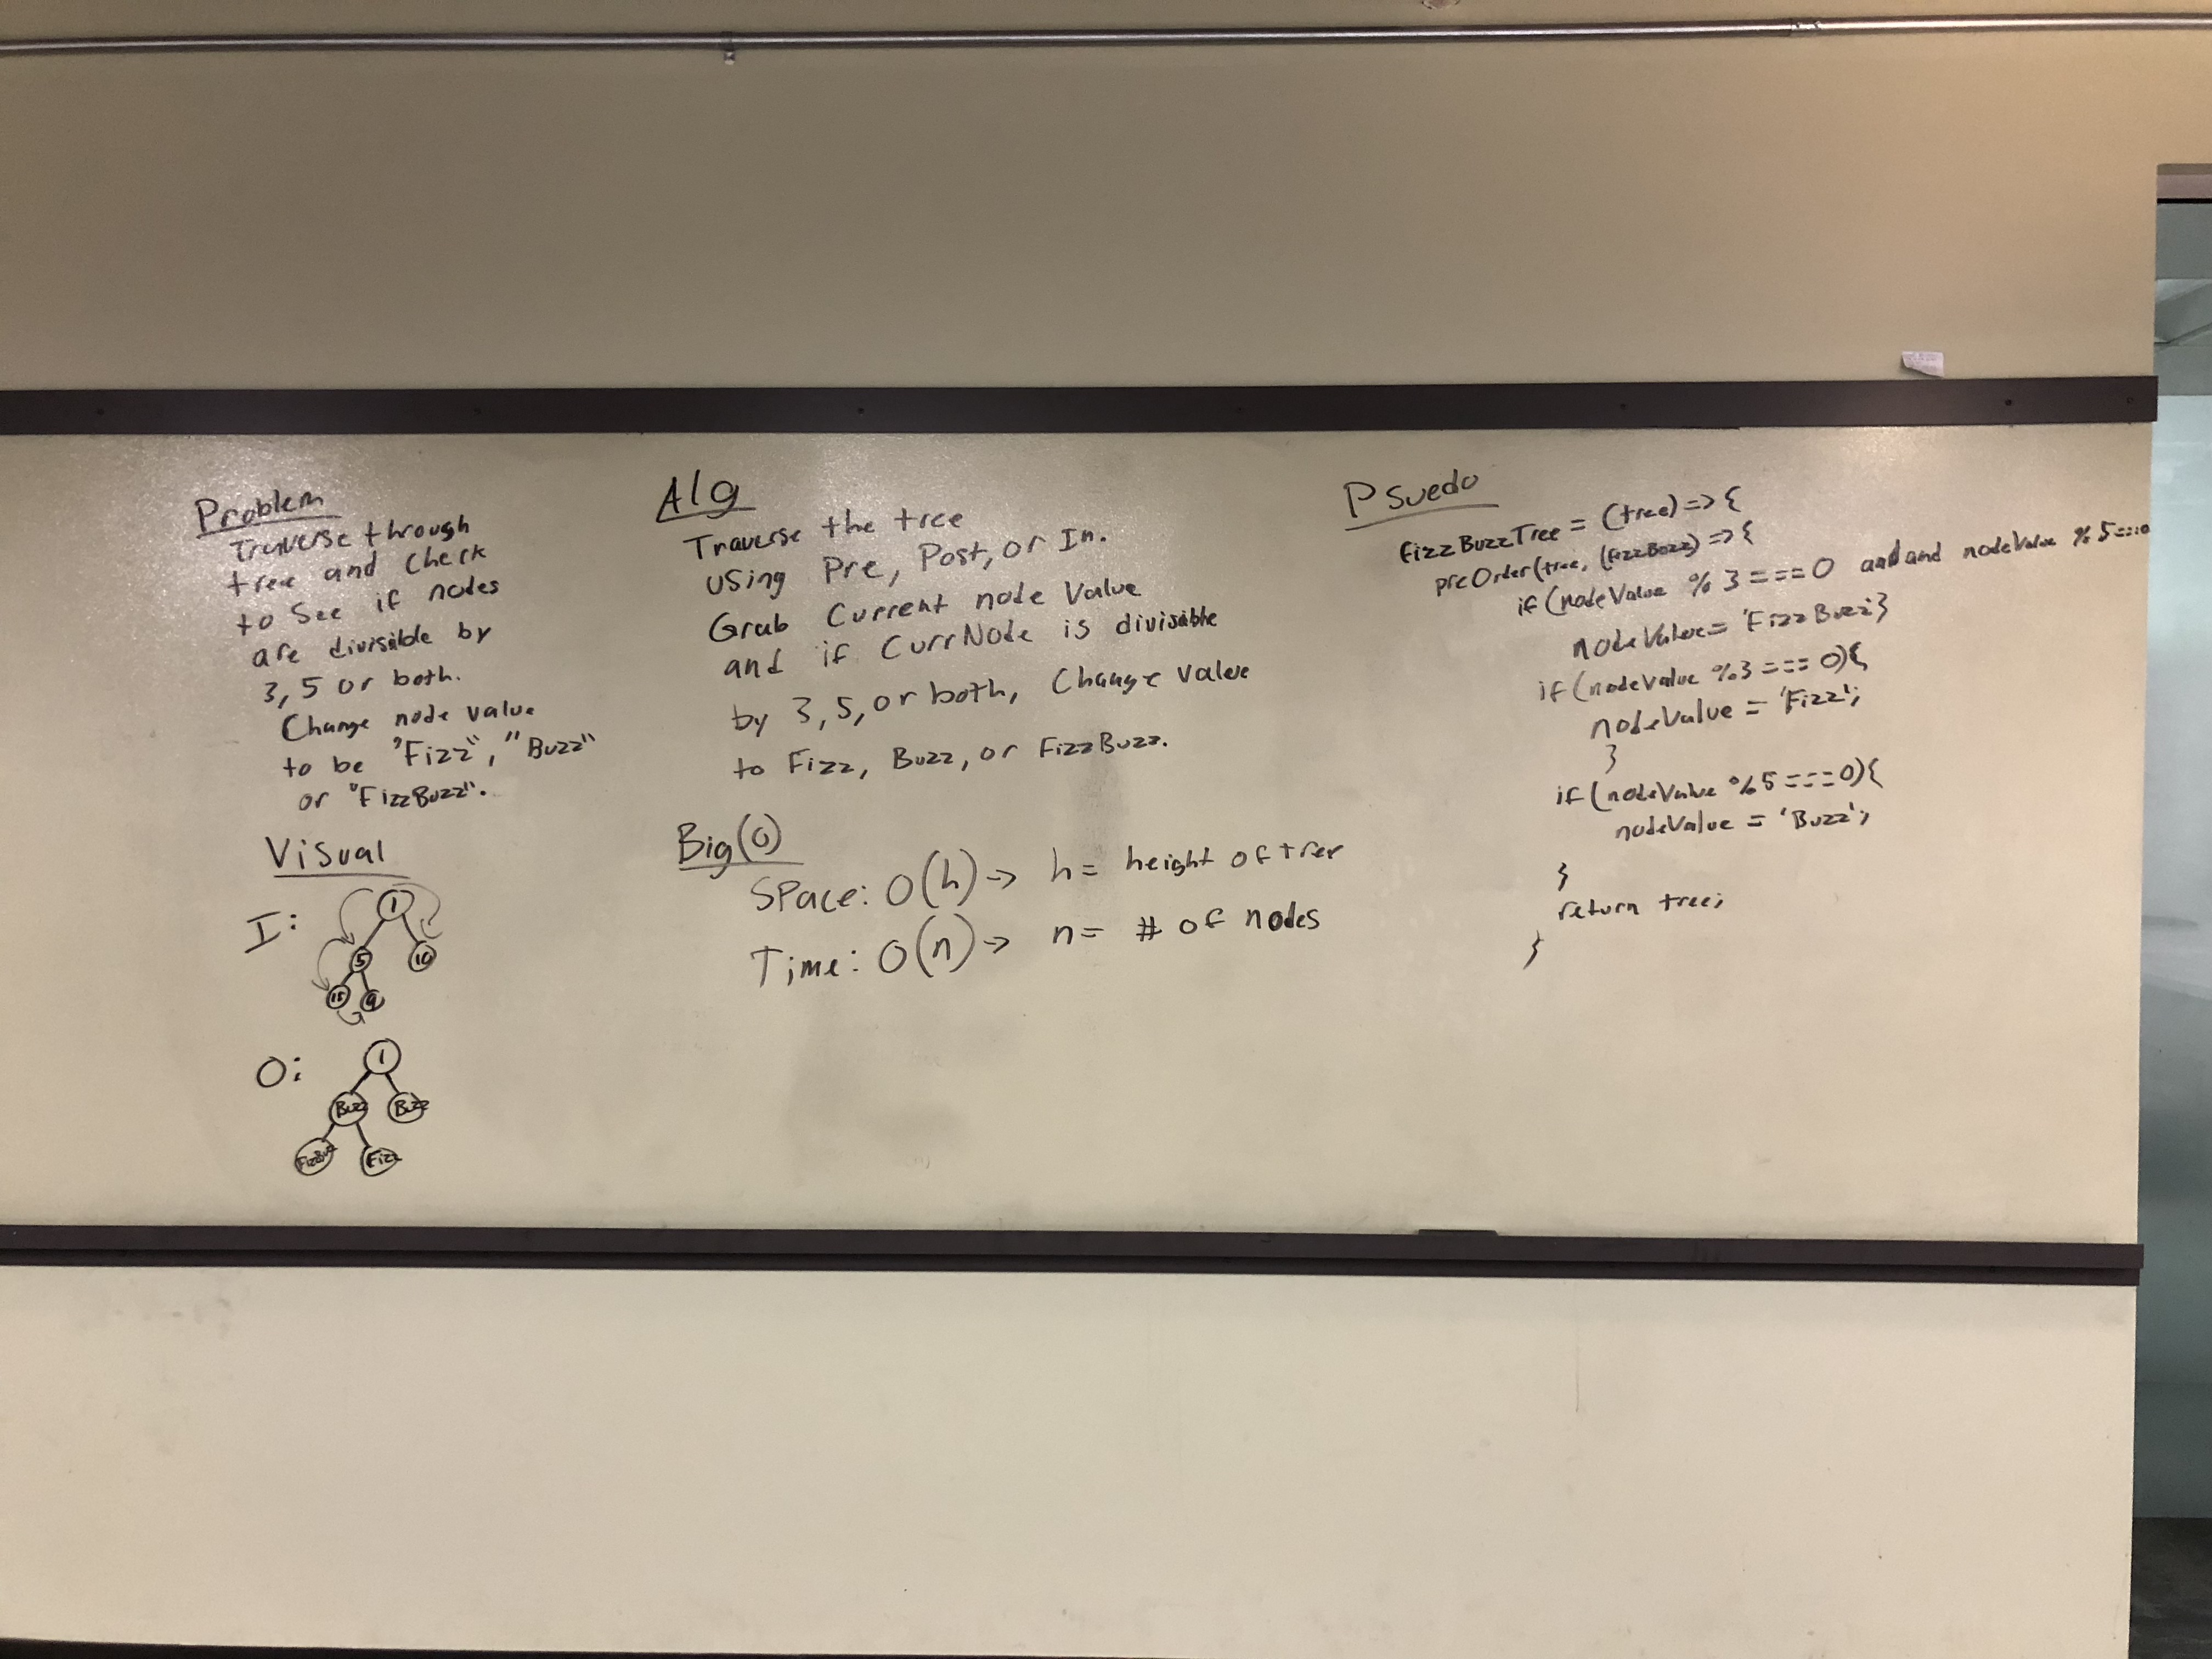 Problem
Traverse through
tree and Check
to See if nodes
are divisible by
3, 5 or both.
Change node value
to be "Fizz", "Buzz"
or "FizzBuzz".
Visual
I:
1
5
10
15
9
O:
1
Buzz
Buzz
FizzBuzz
Fizz
Alg
Traverse the tree
using Pre, Post, or In.
Grab Current node Value
and if CurrNode is divisible
by 3, 5, or both, Change value
to Fizz, Buzz, or FizzBuzz.
Big(O)
Space: O(h) -> h = height of tree
Time: O(n) -> n = # of nodes
Psuedo
fizzBuzzTree = (tree) => {
preOrder(tree, (fizzBuzz) => {
if (nodeValue % 3 === 0 and and nodeValue % 5 === 0
nodeValue = 'FizzBuzz' }
if (nodeValue % 3 === 0) {
nodeValue = 'Fizz';
}
if (nodeValue % 5 === 0) {
nodeValue = 'Buzz';
}
return tree;
}